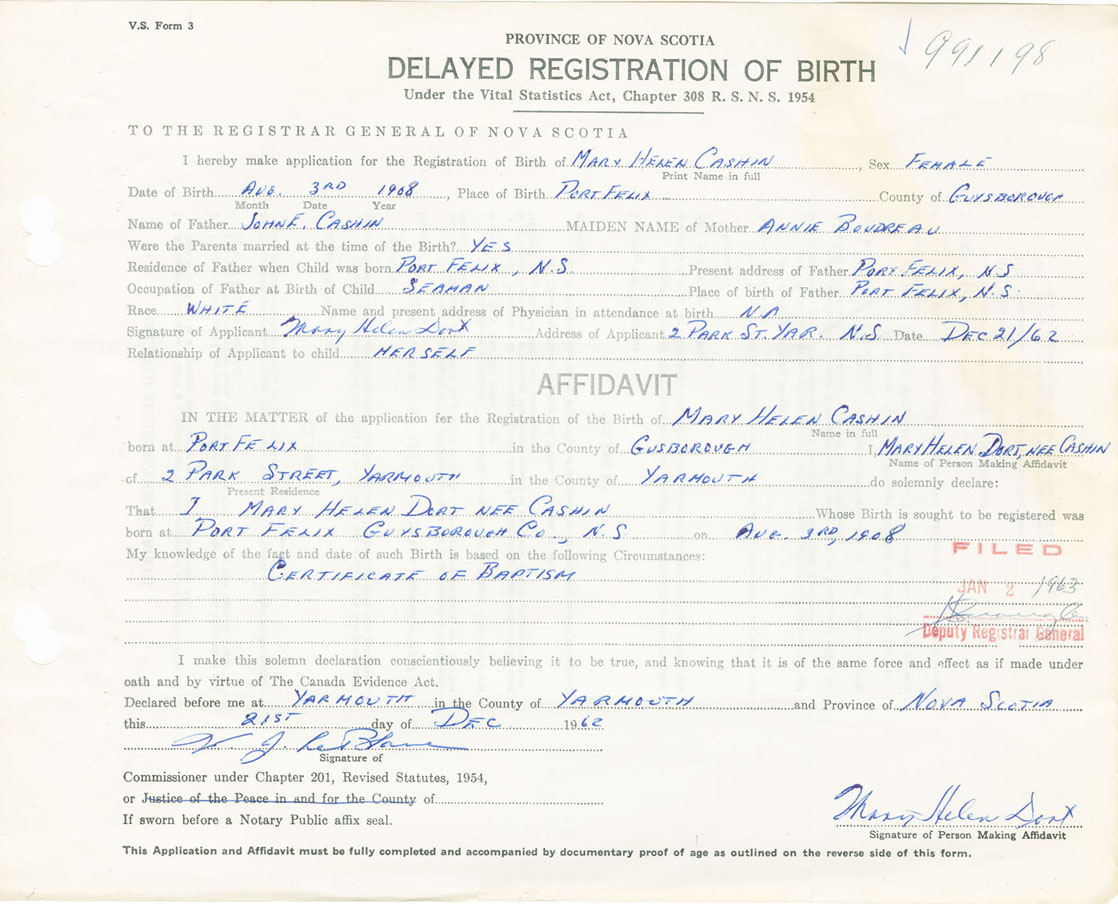 V.S. Form 3
991198
PROVINCE OF NOVA SCOTIA
DELAYED REGISTRATION OF BIRTH
Under the Vital Statistics Act, Chapter 308 R. S. N. S. 1954
TO THE REGISTRAR GENERAL OF NOVA SCOTIA
I hereby make application for the Registration of Birth of MARY HELEN CASHIN, Sex FEMALE
Print Name in full
Date of Birth AUG. 3RD 1908, Place of Birth PORT FELIX County of GUYSBOROUGH
Month Date Year
Name of Father JOHN E. CASHIN MAIDEN NAME of Mother ANNIE BOUDREAU
Were the Parents married at the time of the Birth? YES
Residence of Father when Child was born PORT FELIX, N.S. Present address of Father PORT FELIX, N.S
Occupation of Father at Birth of Child SEAMAN Place of birth of Father PORT FELIX, N.S.
Race WHITE Name and present address of Physician in attendance at birth N.A
Signature of Applicant Mary Helen Dort Address of Applicant 2 PARK ST. YAR. N.S. Date DEC 21/62
Relationship of Applicant to child HERSELF
AFFIDAVIT
IN THE MATTER of the application for the Registration of the Birth of MARY HELEN CASHIN
Name in full
born at PORT FELIX in the County of GUSBOROUGH I MARY HELEN DORT, NEE CASHIN
Name of Person Making Affidavit
of 2 PARK STREET, YARMOUTH in the County of YARMOUTH do solemnly declare:
Present Residence
That I MARY HELEN DORT NEE CASHIN Whose Birth is sought to be registered was
born at PORT FELIX GUYSBOROUGH CO., N.S on AUG. 3RD, 1908
My knowledge of the fact and date of such Birth is based on the following Circumstances:
FILED
CERTIFICATE OF BAPTISM
JAN 2 1963
Deputy Registrar General
I make this solemn declaration conscientiously believing it to be true, and knowing that it is of the same force and effect as if made under
oath and by virtue of The Canada Evidence Act.
Declared before me at YARMOUTH in the County of YARMOUTH and Province of NOVA SCOTIA
this 21ST day of DEC 1962
W. J. LeBlanc
Signature of
Commissioner under Chapter 201, Revised Statutes, 1954,
or Justice of the Peace in and for the County of
If sworn before a Notary Public affix seal.
Mary Helen Dort
Signature of Person Making Affidavit
This Application and Affidavit must be fully completed and accompanied by documentary proof of age as outlined on the reverse side of this form.